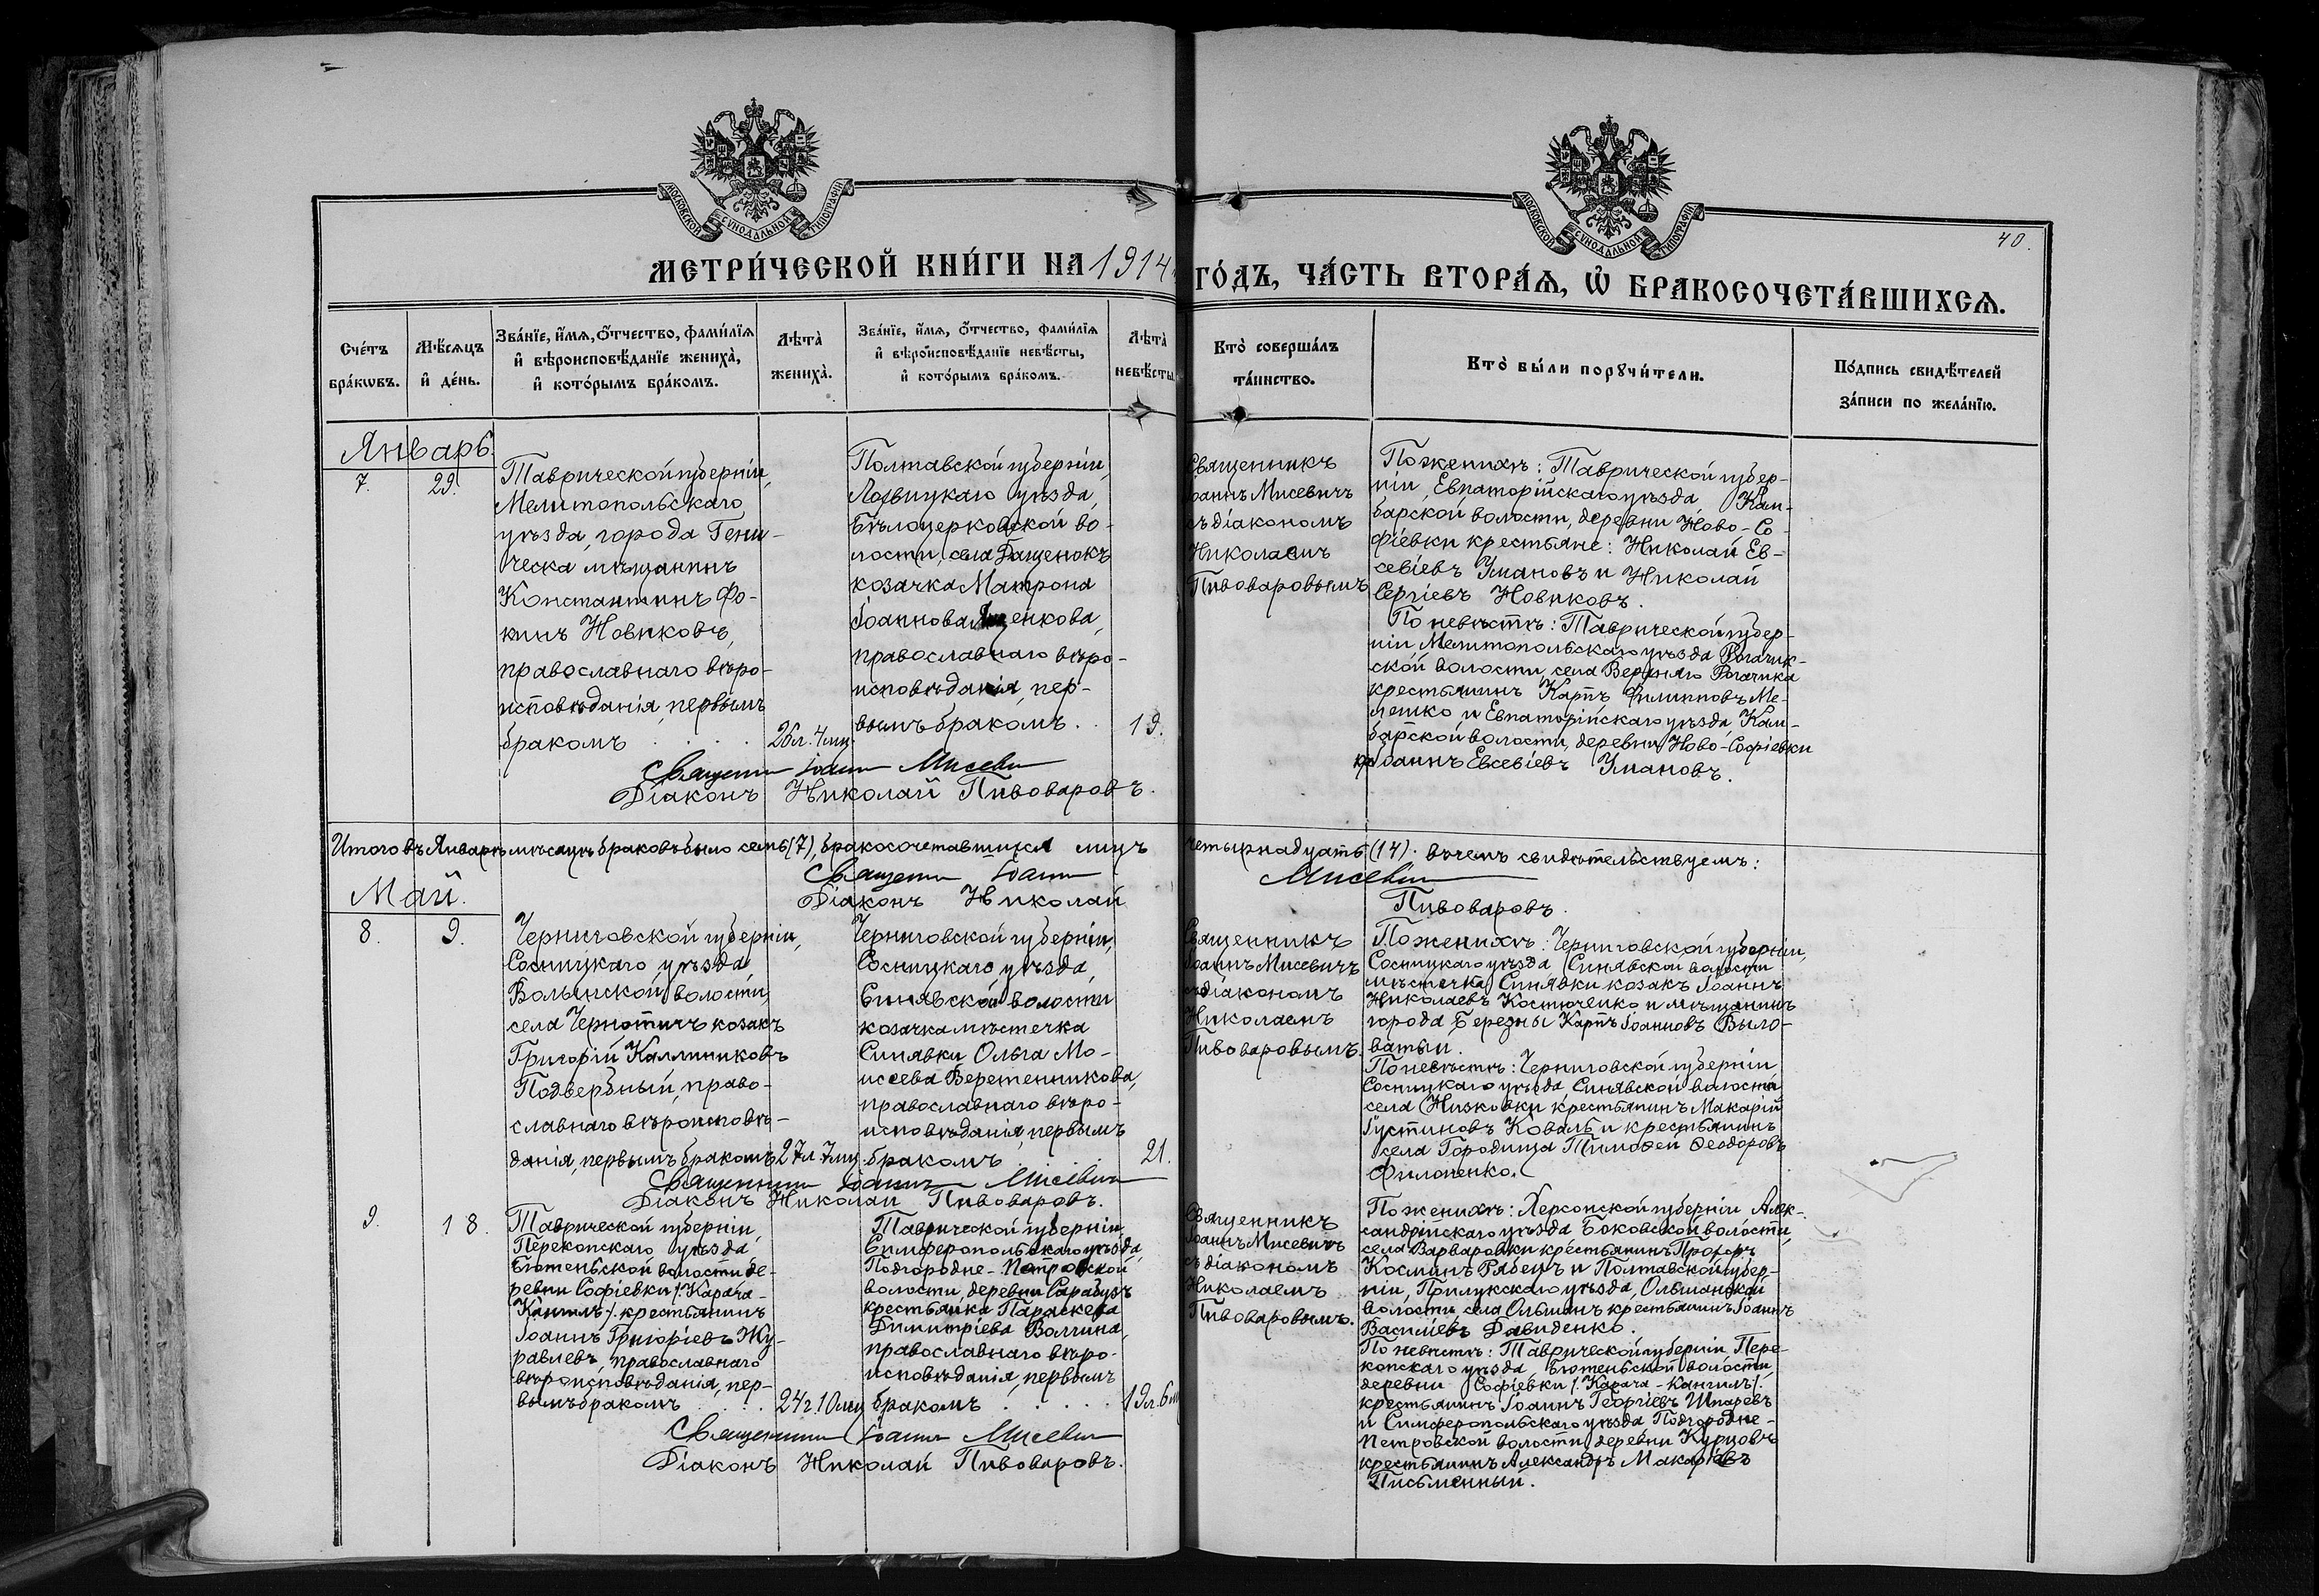 МОСКОВСКОЙ СУНОДАЛЬНОЙ ТИПОГРАФІИ
МОСКОВСКОЙ СУНОДАЛЬНОЙ ТИПОГРАФІИ
40.
МЕТРИ́ЧЕСКОЙ КНИ́ГИ НА 1914
ГО́ДЪ, ЧА́СТЬ ВТОРА́Ѧ, Ѽ БРАКОСОЧЕТА́ВШИХСѦ.
Сче́тъ бра́кѡвъ.
Мѣ́сѧцъ и҆ де́нь.
Зва́нїе, и҆́мѧ, ѻ҆́тчество, фами́лїѧ и҆ вѣроисповѣ́данїе жениха̀, и҆ кото́рымъ бра́комъ.
Лѣта̀ жениха̀.
Зва́нїе, и҆́мѧ, ѻ҆́тчество, фами́лїѧ и҆ вѣроисповѣ́данїе невѣ́сты, и҆ кото́рымъ бра́комъ.
Лѣта̀ невѣ́сты
Кто̀ соверша́лъ та́инство.
Кто̀ бы́ли порꙋчи́тели.
По́дпись свидѣ́телей за́писи по жела́нїю.
Январь.
7.
29.
Таврической губерніи,
Мелитопольскаго
уѣзда, города Гени-
ческа мѣщанинъ
Константинъ Фо-
кинъ Новиковъ,
православнаго вѣро-
исповѣданія, первымъ
бракомъ
26л. 4мц.
Полтавской губерніи,
Лохвицкаго уѣзда,
Бѣлоцерковской во-
лости, села Бащенокъ
козачка Матрона
Іоаннова
православнаго вѣро-
исповѣданія, пер-
вымъ бракомъ.
19.
Священникъ
Іоаннъ Мисевичъ
съ діакономъ
Николаемъ
Пивоваровымъ
По женихѣ: Таврической губер-
ніи, Евпаторійскаго уѣзда, Кам-
барской волости, деревни Ново-Со-
фіевки крестьяне: Николай Ев-
севіевъ Умановъ и Николай
Сергіевъ Новиковъ.
По невѣстѣ: Таврической губер-
ніи Мелитопольскаго уѣзда Рогачик-
ской волости, села Верхняго Рогачика
крестьянинъ Карпъ Филипповъ Ме-
лешко и Евпаторійскаго уѣзда, Кам-
барской волости, деревни Ново-Софіевки
кр. Іоаннъ Евсевіевъ Умановъ.
Священникъ Іоаннъ Мисевичъ
Діаконъ Николай Пивоваровъ.
Итого въ Январѣ мѣсяцѣ браковъ было семь (7), бракосочетавшихся лицъ четырнадцать (14). въ чемъ свидѣтельствуемъ:
Священникъ Іоаннъ Мисевичъ
Діаконъ Николай Пивоваровъ.
Май.
8.
9.
Черниговской губерніи,
Сосницкаго уѣзда,
Волынской волости,
села Чернотичъ козакъ
Григорій Каллиниковъ
Подвербный, право-
славнаго вѣроисповѣ-
данія, первымъ бракомъ
27л 7мц.
Черниговской губерніи,
Сосницкаго уѣзда,
Синявской волости
козачка мѣстечка
Синявки Ольга Мо-
исеева Веретенникова,
православнаго вѣро-
исповѣданія, первымъ
бракомъ
21.
Священникъ
Іоаннъ Мисевичъ
съ діакономъ
Николаемъ
Пивоваровымъ.
По женихѣ: Черниговской губерніи,
Сосницкаго уѣзда Синявской волости
мѣстечка Синявки козакъ Іоаннъ
Николаевъ Костюченко и мѣщанинъ
города Березны Карпъ Іоанновъ Выло-
ватый.
По невѣстѣ: Черниговской губерніи
Сосницкаго уѣзда Синявской волости
села Низковки крестьянинъ Макарій
Іустиновъ Коваль и крестьянинъ
села Городища Тимоѳей Ѳеодоровъ
Филоненко.
Священникъ Іоаннъ Мисевичъ
Діаконъ Николай Пивоваровъ.
9.
18.
Таврической губерніи,
Перекопскаго уѣзда,
Бютеньской волости, де-
ревни Софіевки /: Карача-
Кангилъ :/ крестьянинъ
Іоаннъ Григоріевъ Жу-
равлевъ, православнаго
вѣроисповѣданія, пер-
вымъ бракомъ
24г. 10мц.
Таврической губерніи
Симферопольскаго уѣзда,
Подгородне-Петровской
волости, деревни Сарабузъ
крестьянка Параскева
Димитріева Волчина,
православнаго вѣро-
исповѣданія, первымъ
бракомъ
19л. 6м
Священникъ
Іоаннъ Мисевичъ
съ діакономъ
Николаемъ
Пивоваровымъ.
По женихѣ: Херсонской губерніи Алек-
сандрійскаго уѣзда Боковской волости,
села Варваровки крестьянинъ Прохоръ
Косминъ Рябецъ и Полтавской губер-
ніи, Прилукскаго уѣзда, Ольшанской
волости, села Ольшанъ крестьянинъ Іоаннъ
Василіевъ Давиденко.
По невѣстѣ: Таврической губерніи Пере-
копскаго уѣзда, Бютеньской волости,
деревни Софіевки /: Карача-Кангилъ :/
крестьянинъ Іоаннъ Георгіевъ Шпаревъ
и Симферопольскаго уѣзда Подгородне-
Петровской волости, деревни Курцовъ
крестьянинъ Александръ Макаріевъ
Письменный.
Священникъ Іоаннъ Мисевичъ
Діаконъ Николай Пивоваровъ.